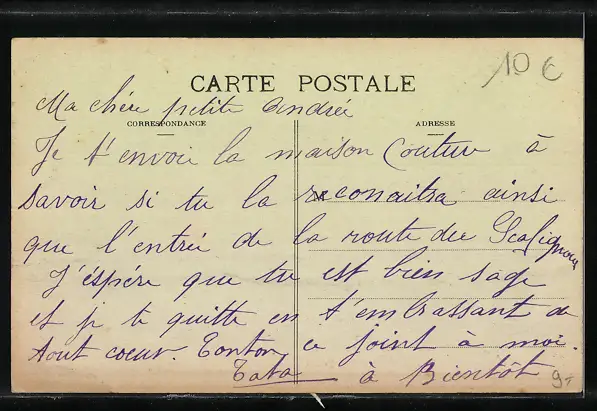 10 €
CARTE POSTALE
Ma chére petite Andrée
CORRESPONDANCE
ADRESSE
Je t'envoie la maison Coutur à
savoir si tu la reconaitra ainsi
que l'entrée de la route de
J'éspére que tu est bien sage
et je te quitte en t'embrassant de
tout coeur. Tonton ce joint à moi.
Tata à Bientôt